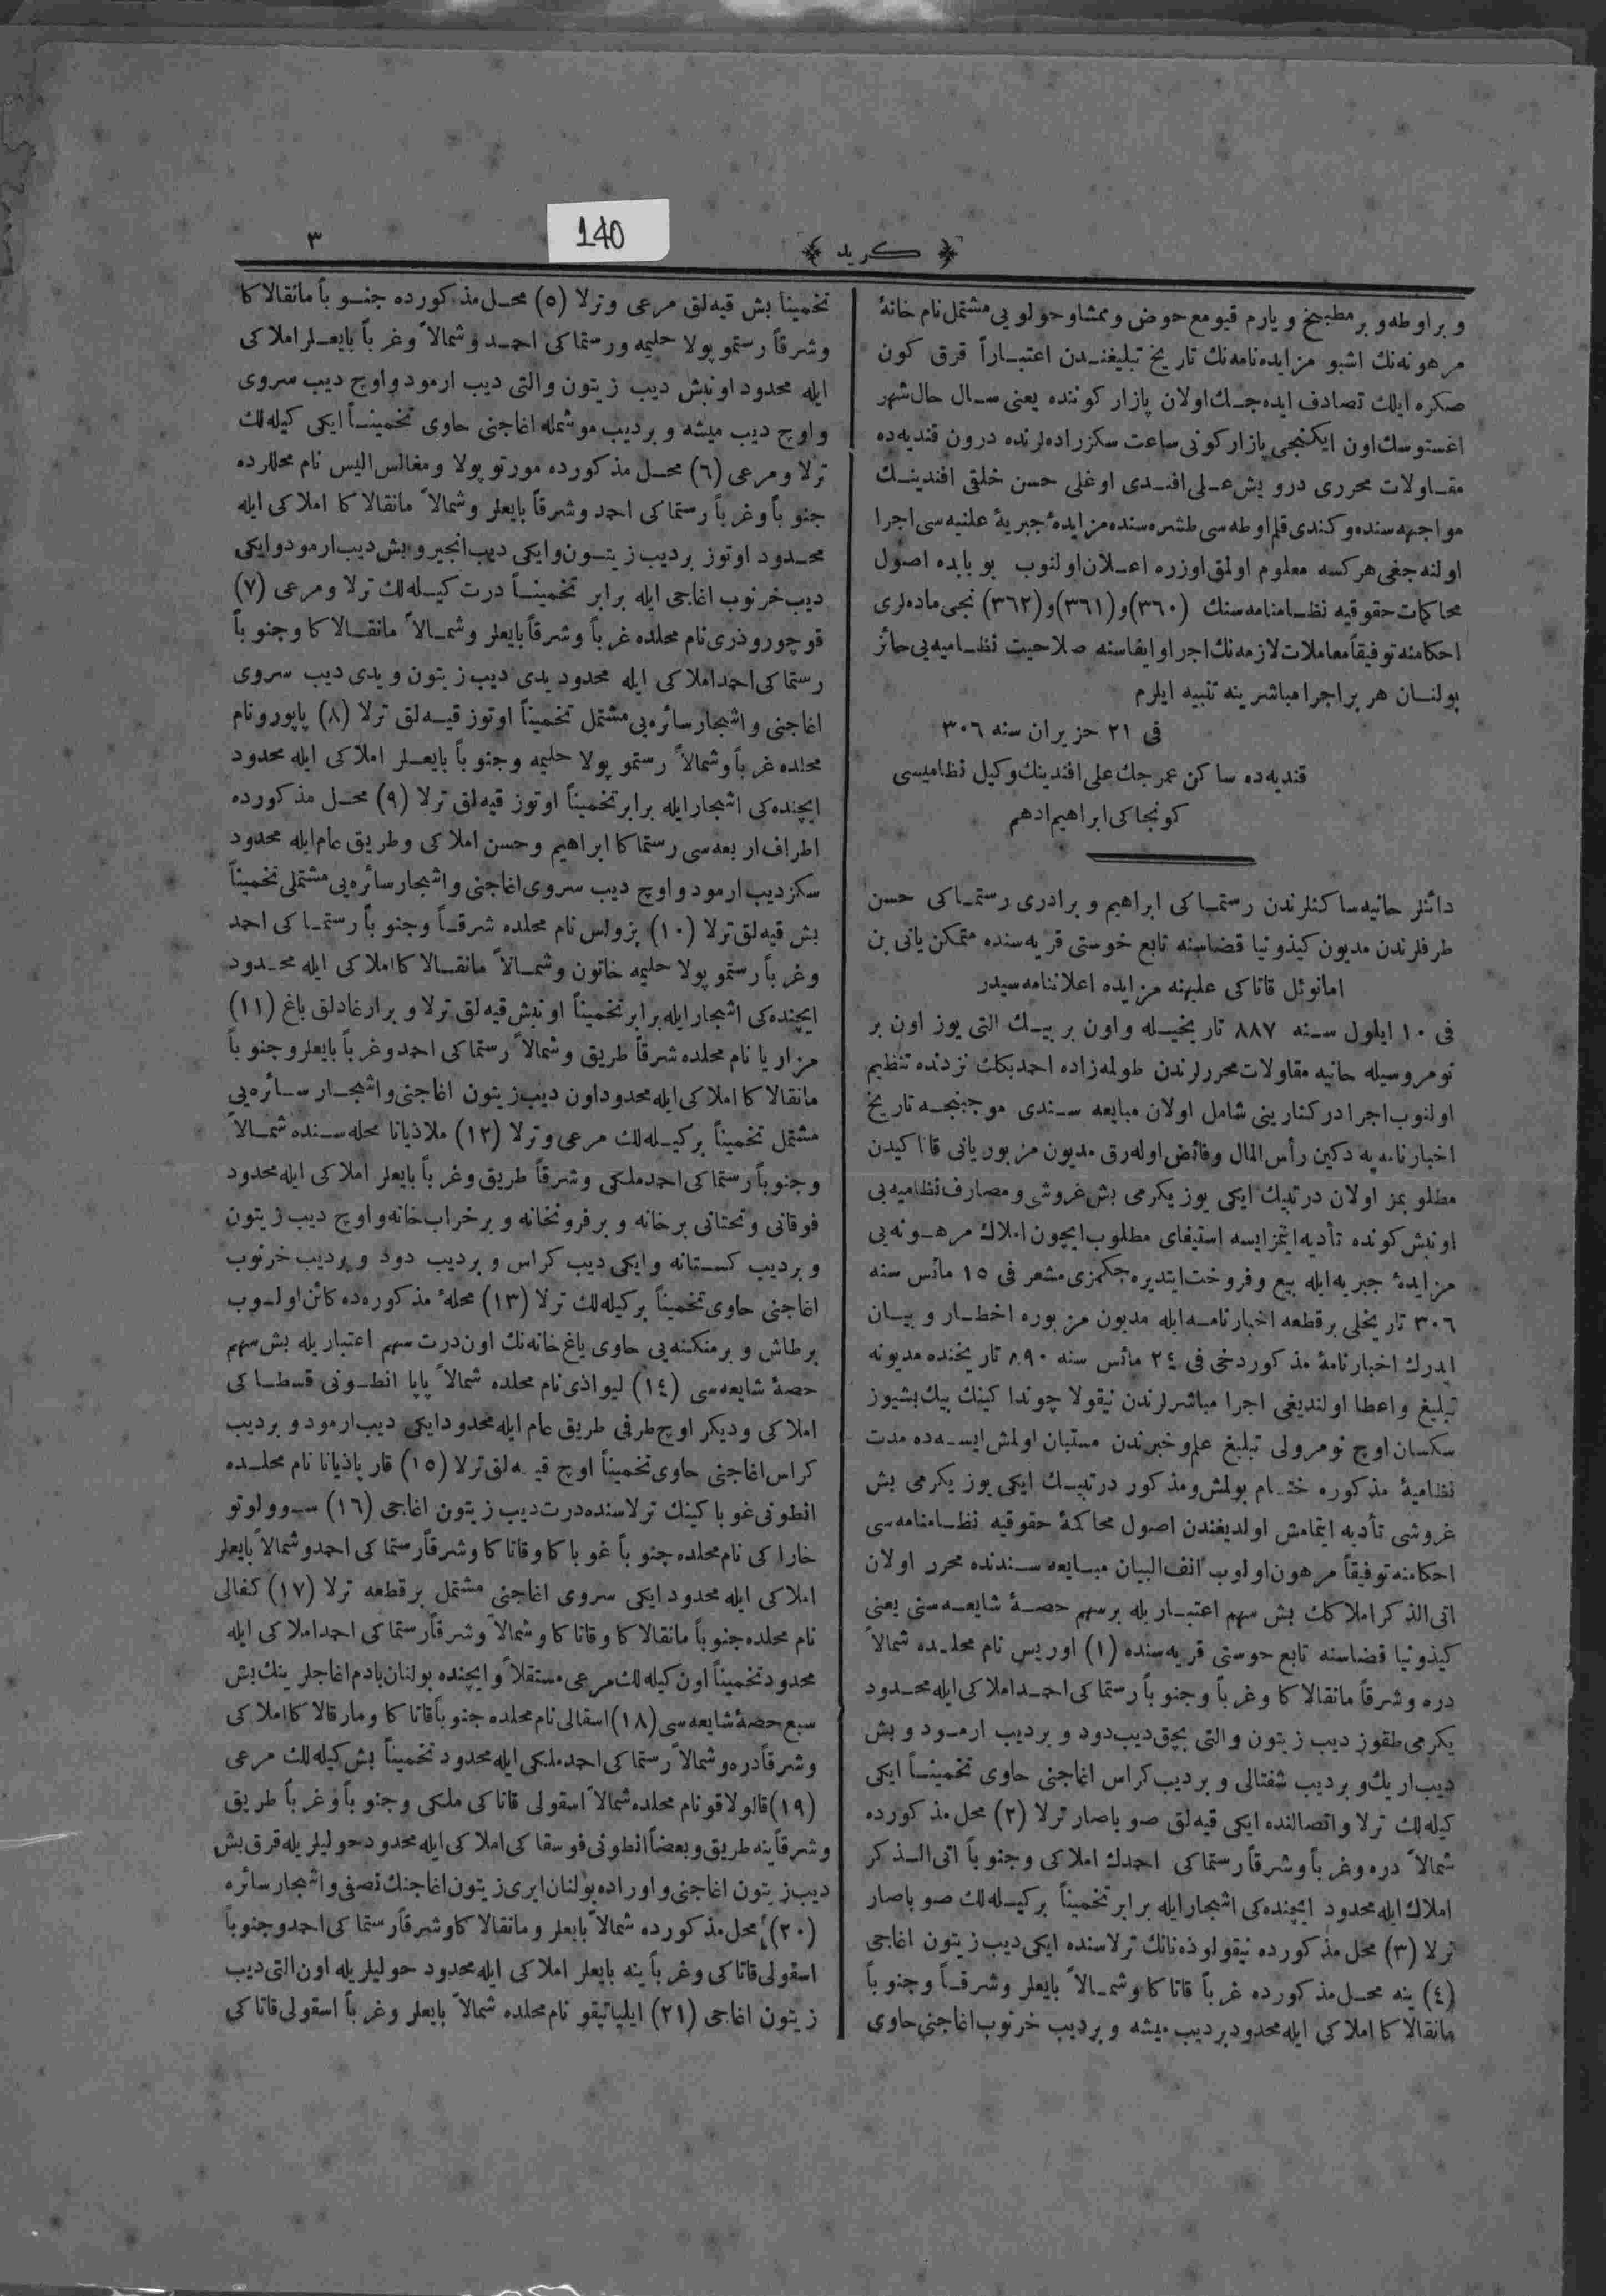 140
﴿ كريد ﴾
٣
و بر اوطه و بر مطبخ و يارم قيو مع حوض و ممشا و حولو يى مشتمل نام خانۀ
مرهونه‌نك اشبو مزايده‌نامه‌نك تاريخ تبليغندن اعتباراً قرق كون
صكره ايلك تصادف ايده‌جك اولان پازار كوننده يعنى سال حال شهر
اغستوسك اون ايكنجى پازار كونى ساعت سكز راده‌لرنده درون قنديه‌ده
مقاولات محررى درويش على افندى اوغلى حسن خلقى افندينك
مواجهه‌سنده و كندى قلم اوطه‌سى طشره‌سنده مزايدۀ جبريۀ علنيه‌سى اجرا
اولنه‌جغى هركسه معلوم اولمق اوزره اعلان اولنوب بو بابده اصول
محاكمات حقوقيه نظامنامه‌سنك (٣٦٠) و (٣٦١) و (٣٦٢) نجى ماده‌لرى
احكامنه توفيقاً معاملات لازمه‌نك اجرا و ايفاسنه صلاحيت نظاميه‌يى حائز
بولنان هر بر اجرا مباشرينه تنبيه ايلرم
فى ٢١ حزيران سنه ٣٠٦
قنديه‌ده ساكن عمرجك على افندينك وكيل نظاميسى
كونجاكى ابراهيم ادهم
دائنلر حانيه ساكنلرندن رستماكى ابراهيم و برادرى رستماكى حسن
طرفلرندن مديون كيذونيا قضاسنه تابع خوستى قريه‌سنده متمكن يانى بن
امانوئل قاتاكى عليهنه مزايده اعلاننامه‌سيدر
فى ١٠ ايلول سنه ٨٨٧ تاريخيله و اون بر بيك التى يوز اون بر
نومروسيله حانيه مقاولات محررلرندن طولمه‌زاده احمد بكك نزدنده تنظيم
اولنوب اجرا دركنارينى شامل اولان مبايعه سندى موجبنجه تاريخ
اخبارنامه‌يه دكين رأس المال و فائض اوله‌رق مديون مزبور يانى قاتاكيدن
مطلوبمز اولان درتبيك ايكى يوز يكرمى بش غروشى و مصارف نظاميه‌يى
اونبش كونده تأديه ايتمز ايسه استيفاى مطلوب ايچون املاك مرهونه‌يى
مزايدۀ جبريه ايله بيع و فروخت ايتديره‌جكمزى مشعر فى ١٥ مائس سنه
٣٠٦ تاريخلى بر قطعه اخبارنامه ايله مديون مزبوره اخطار و بيان
ايدرك اخبارنامۀ مذكور دخى فى ٢٤ مائس سنه ٨٩٠ تاريخنده مديونه
تبليغ و اعطا اولنديغى اجرا مباشرلرندن نيقولا چونداكينك بيك بشيوز
سكسان اوچ نومرولى تبليغ علم و خبرندن مستبان اولمش ايسه‌ده مدت
نظاميۀ مذكوره ختام بولمش و مذكور درتبيك ايكى يوز يكرمى بش
غروشى تأديه ايتمامش اولديغندن اصول محاكمۀ حقوقيه نظامنامه‌سى
احكامنه توفيقاً مرهون اولوب آنف البيان مبايعه سندنده محرر اولان
اتى الذكر املاكك بش سهم اعتباريله بر سهم حصۀ شايعه‌سنى يعنى
كيذونيا قضاسنه تابع خوستى قريه‌سنده (١) اوريس نام محلده شمالاً
دره و شرقاً مانقالاكا و غرباً و جنوباً رستماكى احمد املاكى ايله محدود
يكرمى طقوز ديب زيتون و التى بچق ديب دود و بر ديب ارمود و بش
ديب اريك و بر ديب شفتالى و بر ديب كراس اغاجنى حاوى تخميناً ايكى
كيله‌لك ترلا و اتصالنده ايكى قيه‌لق صو باصار ترلا (٢) محل مذكورده
شمالاً دره و غرباً و شرقاً رستماكى احمدك املاكى و جنوباً اتى الذكر
املاك ايله محدود ايچنده‌كى اشجار ايله برابر تخميناً بر كيله‌لك صو باصار
ترلا (٣) محل مذكورده نيقولوذه‌نانك ترلاسنده ايكى ديب زيتون اغاجى
(٤) ينه محل مذكورده غرباً قاتاكا و شمالاً بايعلر و شرقاً و جنوباً
مانقالاكا املاكى ايله محدود بر ديب ميشه و بر ديب خرنوب اغاجنى حاوى
تخميناً بش قيه‌لق مرعى و ترلا (٥) محل مذكورده جنوباً مانقالاكا
و شرقاً رستموپولا حليمه و رستماكى احمد و شمالاً و غرباً بايعلر املاكى
ايله محدود اونبش ديب زيتون و التى ديب ارمود و اوچ ديب سروى
و اوچ ديب ميشه و بر ديب موشمله اغاجنى حاوى تخميناً ايكى كيله‌لك
ترلا و مرعى (٦) محل مذكورده مورتوپولا و مغالس اليس نام محللرده
جنوباً و غرباً رستماكى احمد و شرقاً بايعلر و شمالاً مانقالاكا املاكى ايله
محدود اوتوز بر ديب زيتون و ايكى ديب انجير و بش ديب ارمود و ايكى
ديب خرنوب اغاجى ايله برابر تخميناً درت كيله‌لك ترلا و مرعى (٧)
قوچوروذرى نام محلده غرباً و شرقاً بايعلر و شمالاً مانقالاكا و جنوباً
رستماكى احمد املاكى ايله محدود يدى ديب زيتون و يدى ديب سروى
اغاجنى و اشجار سائره‌يى مشتمل تخميناً اوتوز قيه‌لق ترلا (٨) پاپورو نام
محلده غرباً و شمالاً رستموپولا حليمه و جنوباً بايعلر املاكى ايله محدود
ايچنده‌كى اشجار ايله برابر تخميناً اوتوز قيه‌لق ترلا (٩) محل مذكورده
اطراف اربعه‌سى رستماكا ابراهيم و حسن املاكى و طريق عام ايله محدود
سكز ديب ارمود و اوچ ديب سروى اغاجنى و اشجار سائره‌يى مشتملى تخميناً
بش قيه‌لق ترلا (١٠) پزولس نام محلده شرقاً و جنوباً رستماكى احمد
و غرباً رستموپولا حليمه خاتون و شمالاً مانقالاكا املاكى ايله محدود
ايچنده‌كى اشجار ايله برابر تخميناً اونبش قيه‌لق ترلا و بر ارغادلق باغ (١١)
مزاريا نام محلده شرقاً طريق و شمالاً رستماكى احمد و غرباً بايعلر و جنوباً
مانقالاكا املاكى ايله محدود اون ديب زيتون اغاجنى و اشجار سائره‌يى
مشتمل تخميناً بر كيله‌لك مرعى و ترلا (١٢) ملاذيانا محله‌سنده شمالاً
و جنوباً رستماكى احمد ملكى و شرقاً طريق و غرباً بايعلر املاكى ايله محدود
فوقانى و تحتانى بر خانه و بر فرونخانه و بر خراب خانه و اوچ ديب زيتون
و بر ديب كستانه و ايكى ديب كراس و بر ديب دود و بر ديب خرنوب
اغاجنى حاوى تخميناً بر كيله‌لك ترلا (١٣) محلۀ مذكوره‌ده كائن اولوب
بر طاش و بر منكنه‌يى حاوى ياغخانه‌نك اون درت سهم اعتباريله بش سهم
حصۀ شايعه‌سى (١٤) ليواذى نام محلده شمالاً پاپا انطونى قسطاكى
املاكى و ديكر اوچ طرفى طريق عام ايله محدود ايكى ديب ارمود و بر ديب
كراس اغاجنى حاوى تخميناً اوچ قيه‌لق ترلا (١٥) قارياذيانا نام محلده
انطونى غوباكينك ترلاسنده درت ديب زيتون اغاجى (١٦) سوولوتو
خاراكى نام محلده جنوباً غوباكا و قاتاكا و شرقاً رستماكى احمد و شمالاً بايعلر
املاكى ايله محدود ايكى سروى اغاجنى مشتمل بر قطعه ترلا (١٧) كفالى
نام محلده جنوباً مانقالاكا و قاتاكا و شمالاً و شرقاً رستماكى احمد املاكى ايله
محدود تخميناً اون كيله‌لك مرعى مستقلاً و ايچنده بولنان بادم اغاجلرينك بش
سبع حصۀ شايعه‌سى (١٨) اسقالى نام محلده جنوباً قاتاكا و مارقالاكا املاكى
و شرقاً دره و شمالاً رستماكى احمد ملكى ايله محدود تخميناً بش كيله‌لك مرعى
(١٩) قالولاقو نام محلده شمالاً اسقولى قاتاكى ملكى و جنوباً و غرباً طريق
و شرقاً ينه طريق و بعضاً انطونى فوسقاكى املاكى ايله محدود حوليلريله قرق بش
ديب زيتون اغاجنى و اوراده بولنان ايرى زيتون اغاجنك نصفى و اشجار سائره
(٢٠) محل مذكورده شمالاً بايعلر و مانقالاكا و شرقاً رستماكى احمد و جنوباً
اسقولى قاتاكى و غرباً ينه بايعلر املاكى ايله محدود حوليلريله اون التى ديب
زيتون اغاجى (٢١) ايلياتيقو نام محلده شمالاً بايعلر و غرباً اسقولى قاتاكى